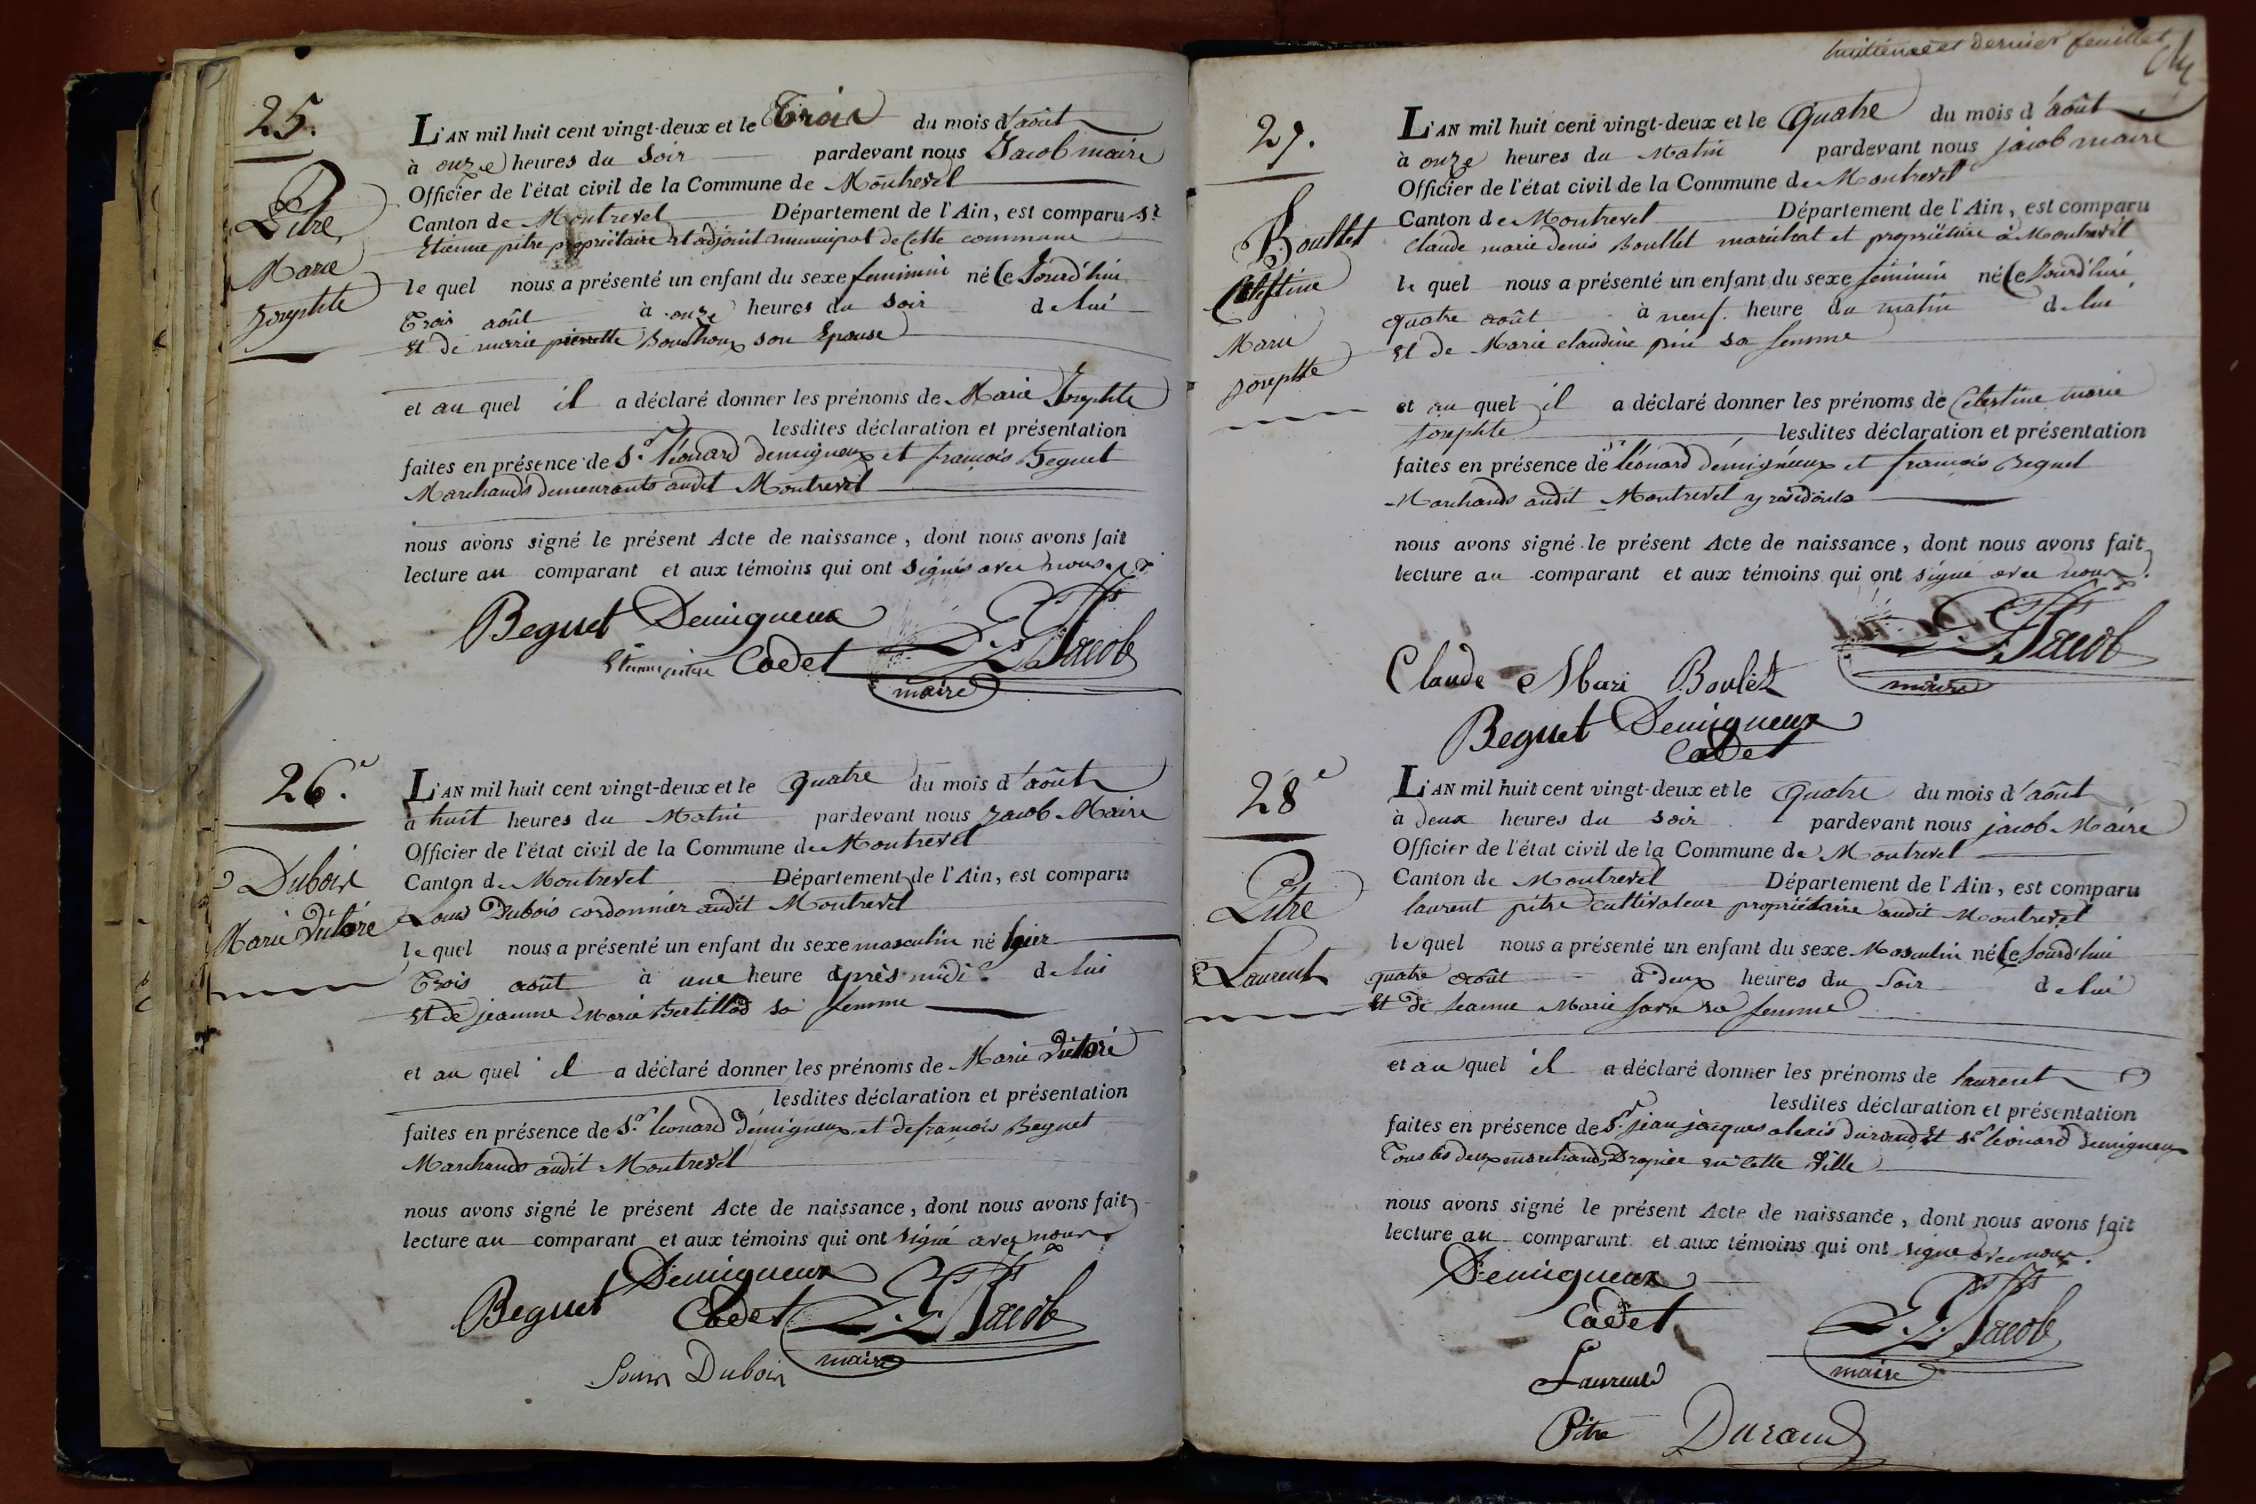 25.
Pitre
Marie
Josephte
L'AN mil huit cent vingt-deux et le Trois du mois d'août
à onze heures du Soir pardevant nous Jacob maire
Officier de l'état civil de la Commune de Montrevel
Canton de Montrevel Département de l'Ain, est comparu Sr
Etienne pitre propriétaire et adjoint municipal de Cette commune
le quel nous a présenté un enfant du sexe feminin né Ce Jourd'hui
Trois août à onze heures du Soir de lui
Et de marie pierrette Bouchoux son Epouse
et au quel il a déclaré donner les prénoms de Marie Josephte
lesdites déclaration et présentation
faites en présence de Sr. Léonard demigneux et françois Beguet
Marchands demeurants audit Montrevel
nous avons signé le présent Acte de naissance, dont nous avons fait
lecture au comparant et aux témoins qui ont signés avec nous
Beguet Demigneux
Etienne pitre Cadet Jacob
maire
26.e
Dubois
Marie Victoré
L'AN mil huit cent vingt-deux et le quatre du mois d'août
à huit heures du Matin pardevant nous Jacob Maire
Officier de l'état civil de la Commune de Montrevel
Canton de Montrevel Département de l'Ain, est comparu
Louis Dubois cordonnier audit Montrevel
le quel nous a présenté un enfant du sexe masculin né hyier
Trois août à une heure après midi de lui
Et de jeanne Marie Bertillod sa femme
et au quel il a déclaré donner les prénoms de Marie Victoré
lesdites déclaration et présentation
faites en présence de Sr. leonard demigneux et de françois Beguet
Marchands audit Montrevel
nous avons signé le présent Acte de naissance, dont nous avons fait
lecture au comparant et aux témoins qui ont signé avec nous
Demigneux
Beguet Cadet Jacob
maire
Louis Dubois
huitième et dernier feuillet
27.
Boullet
Célestine
Marie
Josephte
L'AN mil huit cent vingt-deux et le Quatre du mois d'août
à onze heures du Matin pardevant nous jacob maire
Officier de l'état civil de la Commune de Montrevel
Canton de Montrevel Département de l'Ain, est comparu
Claude marie denis Boullet maréchal et propriétaire à Montrevel
le quel nous a présenté un enfant du sexe féminin né Ce Jourd'hui
quatre août à neuf heure du matin de lui
Et de Marie claudine sa femme
et au quel il a déclaré donner les prénoms de Célestine marie
Josephte lesdites déclaration et présentation
faites en présence de Sr léonard démigneux et françois Beguet
Marchands audit Montrevel y résidants
nous avons signé le présent Acte de naissance, dont nous avons fait
lecture au comparant et aux témoins qui ont signé avec nous.
Jacob
Claude Mari Boulet maire
Beguet Demigneux
Cadet
28e
Pitre
Laurent
L'AN mil huit cent vingt-deux et le Quatre du mois d'août
à deux heures du soir pardevant nous jacob Maire
Officier de l'état civil de la Commune de Montrevel
Canton de Montrevel Département de l'Ain, est comparu
laurent pitre cultivateur propriétaire audit Montrevel
le quel nous a présenté un enfant du sexe Masculin né Ce Jourd'hui
quatre août à deux heures du Soir de lui
Et de Jeanne Marie sa femme
et au quel il a déclaré donner les prénoms de laurent
lesdites déclaration et présentation
faites en présence de Sr. jean jacques alexis durand Et Sr léonard demigneux
Tous les deux marchands en Cette Ville
nous avons signé le présent Acte de naissance, dont nous avons fait
lecture au comparant et aux témoins qui ont signé avec nous.
Demigneux
Cadet Jacob
maire
Laurent
Pitre Durand